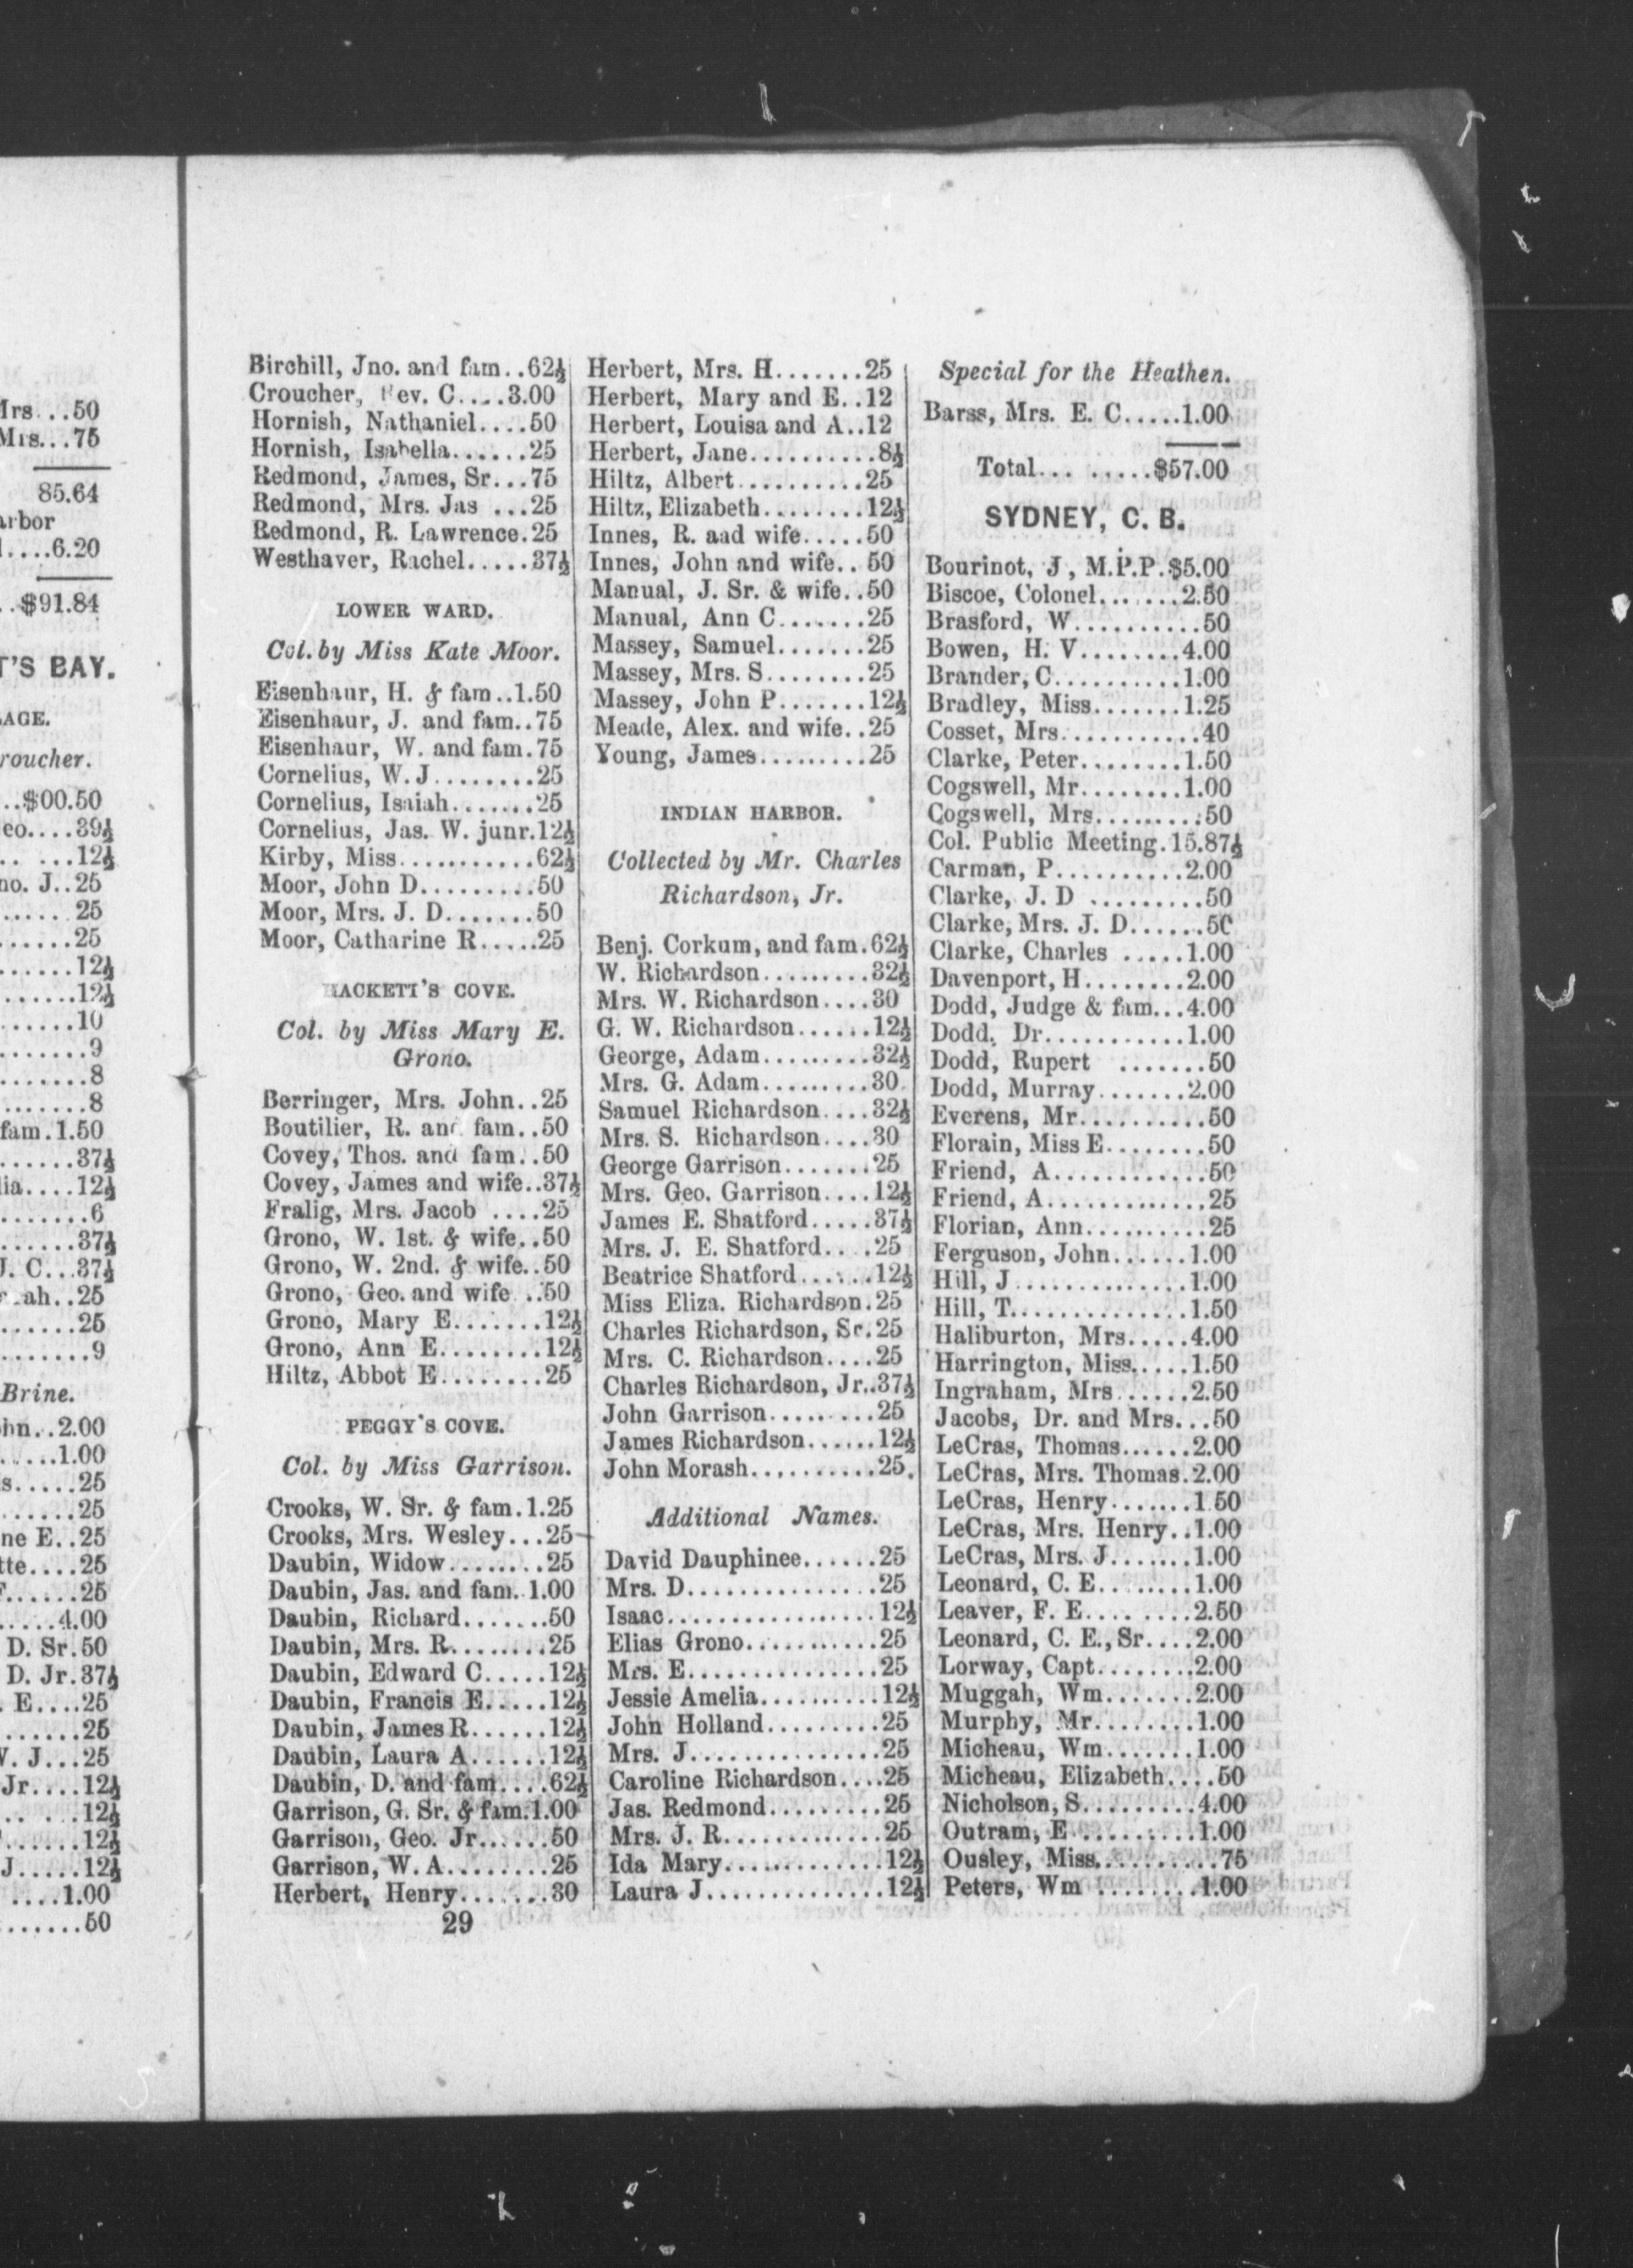 Mrs...50
Mrs...75
85.64
arbor
....6.20
..$91.84
T'S BAY.
AGE.
roucher.
..$00.50
eo....39½
.. ...12½
no. J..25
...... 25
......25
......12½
......12½
......10
.......9
.......8
.......8
fam.1.50
......37½
lia....12½
.......6
......37½
J. C...37½
ah..25
......25
.......9
Brine.
ohn..2.00
.....1.00
s.....25
......25
ne E..25
tte....25
F......25
.....4.00
D. Sr.50
D. Jr.37½
. E....25
.......25
W. J...25
Jr....12½
.. ...12½
.......12½
J.....12½
....1.00
......50
Birchill, Jno. and fam..62½
Croucher, Rev. C....3.00
Hornish, Nathaniel....50
Hornish, Isabella......25
Redmond, James, Sr...75
Redmond, Mrs. Jas ...25
Redmond, R. Lawrence.25
Westhaver, Rachel.....37½
LOWER WARD.
Col. by Miss Kate Moor.
Eisenhaur, H. & fam..1.50
Eisenhaur, J. and fam..75
Eisenhaur, W. and fam.75
Cornelius, W. J........25
Cornelius, Isaiah.......25
Cornelius, Jas. W. junr.12½
Kirby, Miss...........62½
Moor, John D.........50
Moor, Mrs. J. D.......50
Moor, Catharine R.....25
HACKETT'S COVE.
Col. by Miss Mary E.
Grono.
Berringer, Mrs. John..25
Boutilier, R. and fam..50
Covey, Thos. and fam..50
Covey, James and wife..37½
Fralig, Mrs. Jacob ....25
Grono, W. 1st. & wife..50
Grono, W. 2nd. & wife..50
Grono, Geo. and wife ..50
Grono, Mary E.......12½
Grono, Ann E........12½
Hiltz, Abbot E........25
PEGGY'S COVE.
Col. by Miss Garrison.
Crooks, W. Sr. & fam.1.25
Crooks, Mrs. Wesley...25
Daubin, Widow........25
Daubin, Jas. and fam..1.00
Daubin, Richard.......50
Daubin, Mrs. R........25
Daubin, Edward C.....12½
Daubin, Francis E.....12½
Daubin, James R......12½
Daubin, Laura A......12½
Daubin, D. and fam....62½
Garrison, G. Sr. & fam.1.00
Garrison, Geo. Jr......50
Garrison, W. A........25
Herbert, Henry.......30
29
Herbert, Mrs. H.......25
Herbert, Mary and E..12
Herbert, Louisa and A..12
Herbert, Jane..........8½
Hiltz, Albert..........25
Hiltz, Elizabeth........12½
Innes, R. aad wife.....50
Innes, John and wife.. 50
Manual, J. Sr. & wife..50
Manual, Ann C.......25
Massey, Samuel.......25
Massey, Mrs. S........25
Massey, John P.......12½
Meade, Alex. and wife..25
Young, James.........25
INDIAN HARBOR.
Collected by Mr. Charles
Richardson, Jr.
Benj. Corkum, and fam.62½
W. Richardson.........32½
Mrs. W. Richardson....30
G. W. Richardson......12½
George, Adam.........32½
Mrs. G. Adam.........30
Samuel Richardson....32½
Mrs. S. Richardson....30
George Garrison.......25
Mrs. Geo. Garrison....12½
James E. Shatford.....37½
Mrs. J. E. Shatford....25
Beatrice Shatford......12½
Miss Eliza. Richardson.25
Charles Richardson, Sr.25
Mrs. C. Richardson....25
Charles Richardson, Jr..37½
John Garrison.........25
James Richardson......12½
John Morash...........25.
Additional Names.
David Dauphinee......25
Mrs. D...............25
Isaac.................12½
Elias Grono...........25
Mrs. E...............25
Jessie Amelia..........12½
John Holland.........25
Mrs. J...............25
Caroline Richardson....25
Jas. Redmond.........25
Mrs. J. R.............25
Ida Mary.............12½
Laura J...............12½
Special for the Heathen.
Barss, Mrs. E. C.....1.00
Total... ......$57.00
SYDNEY, C. B.
Bourinot, J , M.P.P.$5.00
Biscoe, Colonel.......2.50
Brasford, W..........50
Bowen, H. V........4.00
Brander, C..........1.00
Bradley, Miss.......1.25
Cosset, Mrs...........40
Clarke, Peter........1.50
Cogswell, Mr........1.00
Cogswell, Mrs.........50
Col. Public Meeting.15.87½
Carman, P..........2.00
Clarke, J. D .........50
Clarke, Mrs. J. D......50
Clarke, Charles .....1.00
Davenport, H........2.00
Dodd, Judge & fam...4.00
Dodd, Dr...........1.00
Dodd, Rupert .......50
Dodd, Murray.......2.00
Everens, Mr..........50
Florain, Miss E........50
Friend, A............50
Friend, A.............25
Florian, Ann..........25
Ferguson, John......1.00
Hill, J..............1.00
Hill, T..............1.50
Haliburton, Mrs.....4.00
Harrington, Miss.....1.50
Ingraham, Mrs......2.50
Jacobs, Dr. and Mrs...50
LeCras, Thomas......2.00
LeCras, Mrs. Thomas.2.00
LeCras, Henry.......1.50
LeCras, Mrs. Henry..1.00
LeCras, Mrs. J.......1.00
Leonard, C. E........1.00
Leaver, F. E.... ....2.50
Leonard, C. E., Sr....2.00
Lorway, Capt........2.00
Muggah, Wm.......2.00
Murphy, Mr........1.00
Micheau, Wm.......1.00
Micheau, Elizabeth....50
Nicholson, S.........4.00
Outram, E..........1.00
Ousley, Miss..........75
Peters, Wm ........1.00